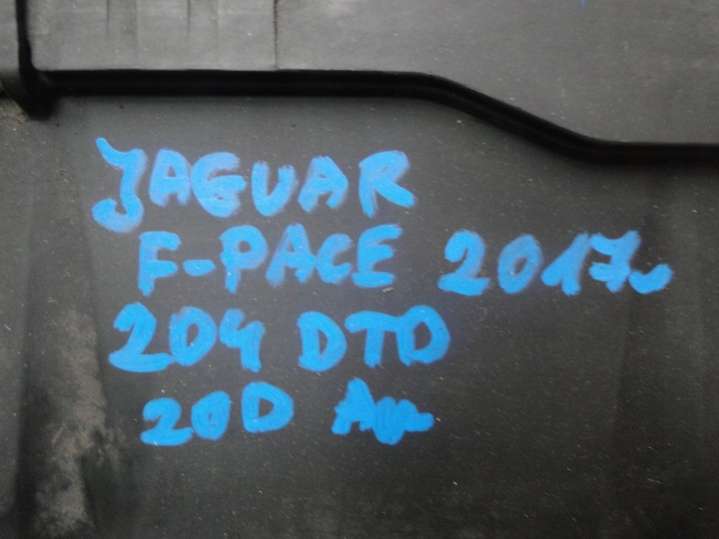 JAGUAR
F-PACE 2017r
204 DTD
20D